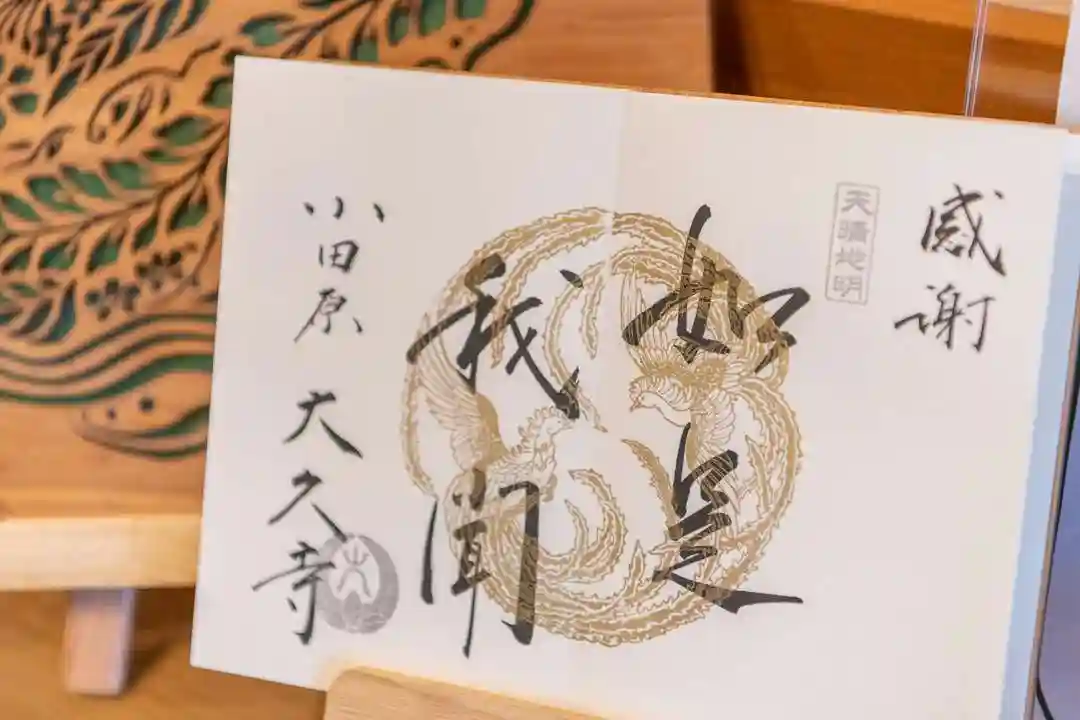 感謝
天晴地明
如是
我聞
小田原 大久寺